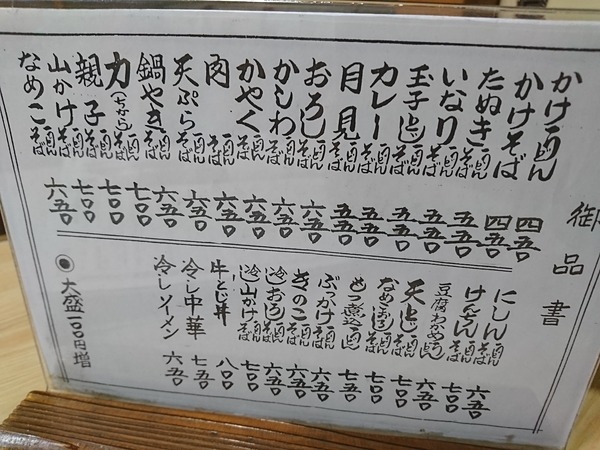 御品書
かけうどん 四五〇
かけそば 四五〇
たぬきうどんそば 五五〇
いなりうどんそば 五五〇
玉子とじうどんそば 五五〇
カレーうどんそば 五五〇
月見うどんそば 五五〇
おろしうどんそば 六五〇
かしわうどんそば 六五〇
かやくうどんそば 六五〇
肉うどんそば 六五〇
天ぷらうどんそば 六五〇
鍋やきうどんそば 六五〇
力(ちから)うどんそば 七〇〇
親子うどんそば 七〇〇
山かけうどんそば 七〇〇
なめこうどんそば 六五〇
にしんうどんそば 六五〇
けんちんうどんそば 七〇〇
豆腐わかめうどん 六五〇
天とじうどんそば 七〇〇
なめこおろしうどんそば 七〇〇
もつ煮込うどん 七五〇
ぶっかけうどんそば 六五〇
きのこうどんそば 六五〇
冷しおろしうどんそば 六五〇
冷し山かけうどんそば 七〇〇
牛とじ丼 八〇〇
冷し中華 七五〇
冷しソーメン 六五〇
◉大盛一〇〇円増